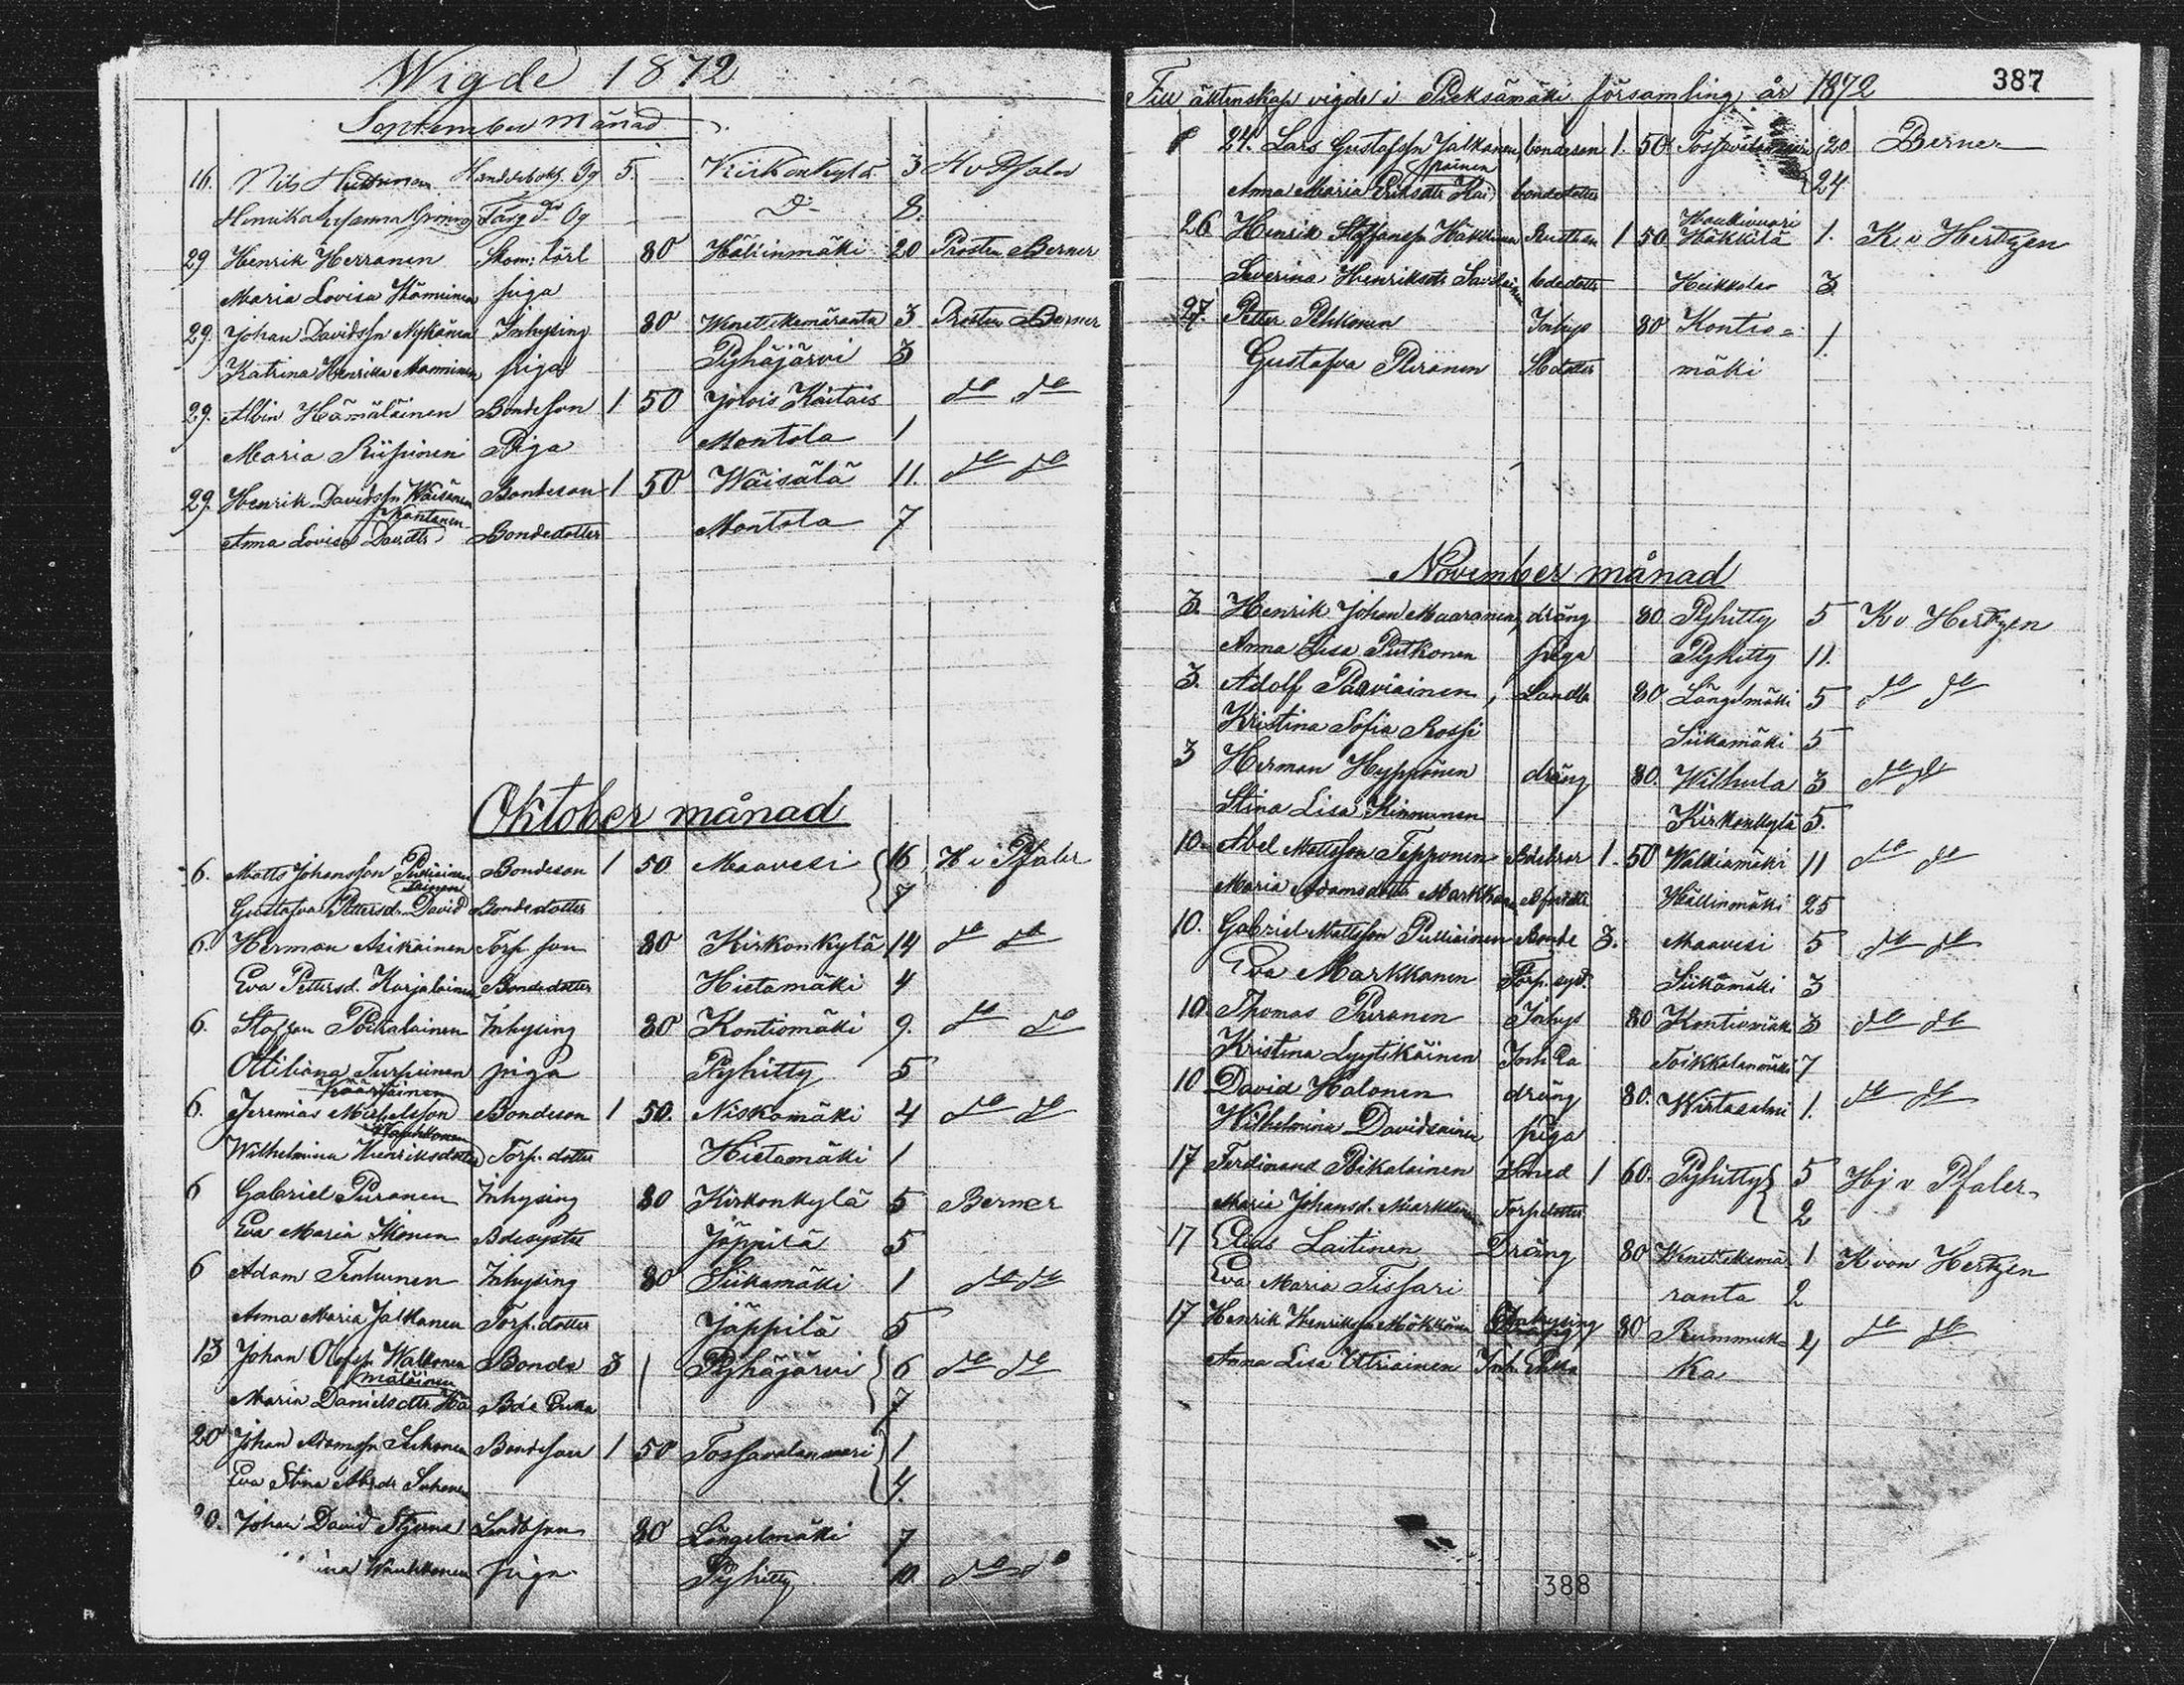 Wigde 1872
September månad
16. Nils Huttunen Handelsbokh. Og 5. Kirkonkylä 3 H v Pfaler
Henrika Susanna Färg dr Og D:o 8.
29 Henrik Herranen Skom: lärl 80 Hällinmäki 20 Prosten Berner
Maria Lovisa Hämäinen piga
29. Johan Davidssn Nykänen Inhysing 80 Wenetekemäranta 3 Prosten Berner
Katrina Henrika Manninen piga Pyhäjärvi 3
29. Albin Hämäläinen Bondeson 1 50 Jorois Kaitais do do
Maria Riipinen Piga Montola 1
29. Henrik Davidssn Wäisänen Bondeson 1 50 Wäisälä 11. do do
Kontanen
Anna Lovisa Davdtr Bondedotter Montola 7
Oktober månad
6. Matts Johansson Pulliainen Bondeson 1 50 Maavesi 16 H v Pfaler
sainen
Gustafva Pettersd. David Bondedotter 7
6. Herman Asikainen Torp. son 80 Kirkonkylä 14 do do
Eva Pettersd. Karjalainen Bondedotter Hietamäki 4
6. Staffan Poikalainen Inhysing 80 Kontiomäki 9. do do
Ottiliana Turpeinen piga Pyhitty 5
Kääriäinen
6. Jeremias Mickelsson Bondeson 1 50. Niskamäki 4 do do
Wauhkonen
Wilhelmina Henriksdotter Torp. dotter Hietamäki 1
6 Gabriel Puranen Inhysing 80 Kirkonkylä 5 Berner
Eva Maria Ikonen Bdesyster Jäppilä 5
6 Adam Tenhunen Inhysing 80 Siikamäki 1 do do
Anna Maria Jalkanen Torp. dotter Jäppilä 5
13 Johan Olofssn Walkonen Bonde 3 Pyhäjärvi 6 do do
mäläinen
Maria Danielsdtr Hä Bde Enka 7
20 Johan Adamssn Suhonen Bondeson 1 50 Tossavalanmeri 1
Eva Stina Abrdr Suhonen 4.
20. Johan David Stjerna Landbson 80 Längelmäki 7
ina Wauhkonen piga Pyhitty 10. do do
387
Till äktenskap vigde i Pieksämäki församling år 1872
21. Lars Gustafssn Jalkanen bondeson 1. 50 20 Berner
painen
Anna Maria Eriksdtr Kai bondedotter 24
Haukivuori
26 Henrik Staffanssn Häkkinen 1 50 Häkkilä 1. K v Hertzen
Severina Henriksdtr bdedotter Heikkola 3
27 Petter Pekkonen Inhys 80 Kontio=
Gustafva Piironen mäki 1.
November månad
3. Henrik Johan Maaranen, dräng 80 Pyhitty 5 K v Hertzen
Anna Lisa Putkonen piga Pyhitty 11.
3. Adolf Paaviainen, Landb 80 Längelmäki 5 do do
Kristina Sofia Rossi Siikamäki 5
3 Herman Hyppönen dräng 80. Wilhula 3 do do
Stina Lisa Kinnunen Kirkonkylä 5.
10. Abel Mattsson Tepponen Bdebror 1. 50 Walkiamäki 11 do do
Maria Adamsdotter Markkanen Hällinmäki 25
10. Gabriel Mattsson Pulliainen Bonde 3. Maavesi 5 do do
Eva Markkanen Torp. syst. Siikamäki 3
10. Thomas Puranen Inhys 80 Kontiomäki 3 do do
Kristina Lyytikäinen Inh Ea Toikkalanmäki 7
10 David Halonen dräng 80. Wirtasalmi 1. do do
Wilhelmina Davidsainen piga
17 Ferdinand Poikalainen Smed 1 60. Pyhitty 5 Hj v Pfaler
Maria Johansd. Markkanen Torpdotter 2
17 Elias Laitinen Dräng 80 Wenetekemä 1 K von Hertzen
Eva Maria Tissari ranta 2
17 Henrik Henrikssn Mökkönen Inhysing 80 Rummuk= 4 do do
Anna Lisa Utriainen Inh. Enka ka
388